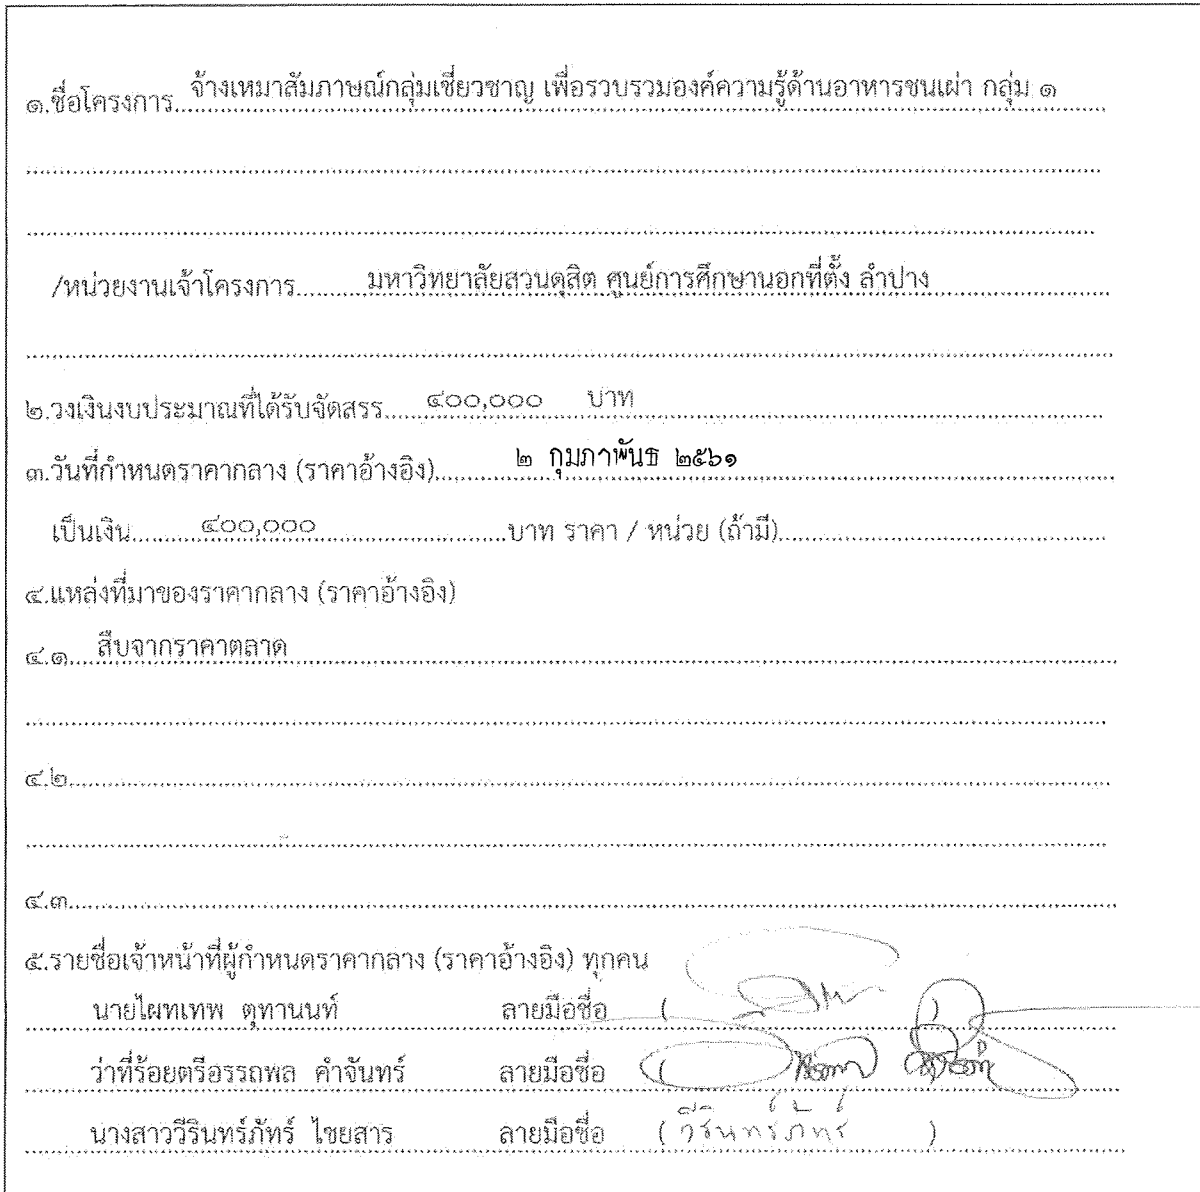 ๑.ชื่อโครงการ จ้างเหมาสัมภาษณ์กลุ่มเชี่ยวชาญ เพื่อรวบรวมองค์ความรู้ด้านอาหารชนเผ่า กลุ่ม ๑
/หน่วยงานเจ้าโครงการ มหาวิทยาลัยสวนดุสิต ศูนย์การศึกษานอกที่ตั้ง ลำปาง
๒.วงเงินงบประมาณที่ได้รับจัดสรร ๔๐๐,๐๐๐ บาท
๓.วันที่กำหนดราคากลาง (ราคาอ้างอิง) ๒ กุมภาพันธ ๒๕๖๑
เป็นเงิน ๔๐๐,๐๐๐ บาท ราคา / หน่วย (ถ้ามี)
๔.แหล่งที่มาของราคากลาง (ราคาอ้างอิง)
๔.๑ สืบจากราคาตลาด
๔.๒
๔.๓
๕.รายชื่อเจ้าหน้าที่ผู้กำหนดราคากลาง (ราคาอ้างอิง) ทุกคน
นายไผทเทพ ตุทานนท์ ลายมือชื่อ ( )
ว่าที่ร้อยตรีอรรถพล คำจันทร์ ลายมือชื่อ (
นางสาววีรินทร์ภัทร์ ไชยสาร ลายมือชื่อ ( วีรินทร์ภัทร์ )